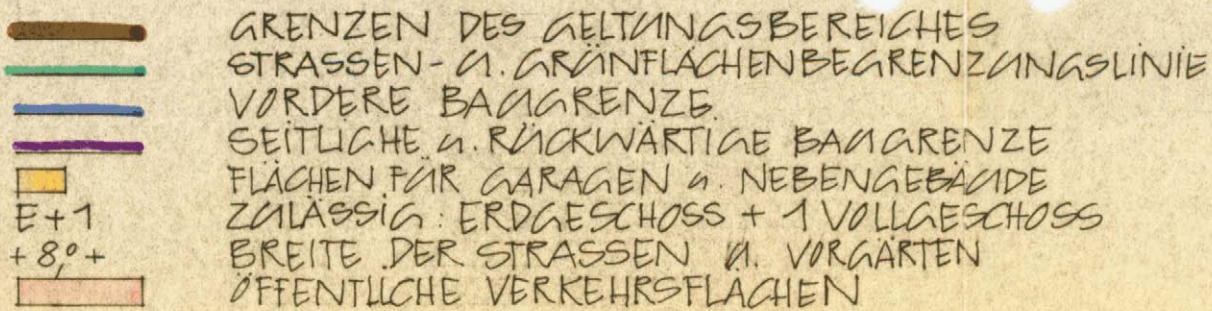 GRENZEN DES GELTUNGSBEREICHES
STRASSEN- U. GRÜNFLÄCHENBEGRENZUNGSLINIE
VORDERE BAUGRENZE
SEITLICHE U. RÜCKWÄRTIGE BAUGRENZE
FLÄCHEN FÜR GARAGEN U. NEBENGEBÄUDE
E+1 ZULÄSSIG: ERDGESCHOSS + 1 VOLLGESCHOSS
+8,0+ BREITE DER STRASSEN U. VORGÄRTEN
ÖFFENTLICHE VERKEHRSFLÄCHEN